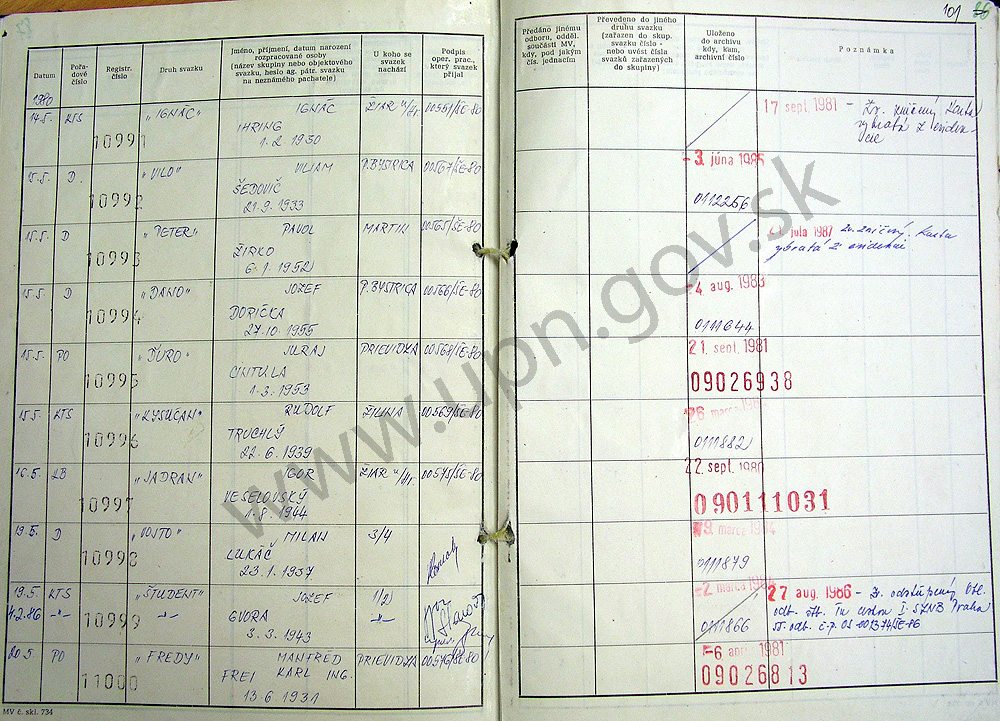 101
Datum
Pořa-
dové
číslo
Registr.
číslo
Druh svazku
Jméno, příjmení, datum narození
rozpracované osoby
(název skupiny nebo objektového
svazku, heslo ag. pátr. svazku
na neznámého pachatele)
U koho se
svazek
nachází
Podpis
oper. prac.,
který svazek
přijal
Předáno jinému
odboru, odděl.
součásti MV,
kdy, pod jakým
čís. jednacím
Převedeno do jiného
druhu svazku
(zařazen do skup.
svazku číslo -
nebo uvést čísla
svazků zařazených
do skupiny)
Uloženo
do archivu
kdy, kam,
archivní číslo
Poznámka
1980
14.5. KTS 10991 „IGNÁC" IGNÁC ŽIAR n/Hr. 00551/ŠE-80
IHRING
1.2.1930
17 sept. 1981 - Zv. zničený karta
vybratá z eviden-
cie
15.5. D. 10992 „VILO" VILIAM P.BYSTRICA 00567/ŠE-80
ŠEDOVIČ
21.9.1933
-3. júna 1985
0112256
15.5. D 10993 „PETER" PAVOL MARTIN 00565/ŠE-80
ŽIRKO
6.1.1952
júla 1987 Zv. zničený. Karta
vybratá z evidencie
15.5. D 10994 „DANO" JOZEF P.BYSTRICA 00566/ŠE-80
DORIČKA
27.10.1955
-4 aug. 1983
0111644
15.5. PO 10995 „ĎURO" JURAJ PRIEVIDZA 00568/ŠE-80
CINTULA
1.3.1953
21. sept. 1981
09026938
15.5. KTS 10996 „KYSUČAN" RUDOLF ŽILINA 00569/ŠE-80
TRUCHLÝ
22.6.1939
marca
0111882
16.5. 10997 „JADRAN" IGOR ŽIAR n/Hr. 00575/ŠE-80
VESELOVSKÝ
1.8.1944
22. sept. 1980
090111031
19.5. D 10998 „VOJTO" MILAN 3/4
LUKÁČ
23.1.1937
marca
0111879
19.5. KTS 10999 „ŠTUDENT" JOZEF 1/2
4.2.86 -"- -"- GVORA -"-
3.3.1943
-2. marca
0111866
27 aug. 1986 - Zv. odstúpený
I. SZNB Praha
20.5 PO 11000 „FREDY" MANFRÉD PRIEVIDZA 00576/ŠE-80
FREI KARL ING.
13.6.1931
-6 1981
09026813
MV č. skl. 734
www.upn.gov.sk